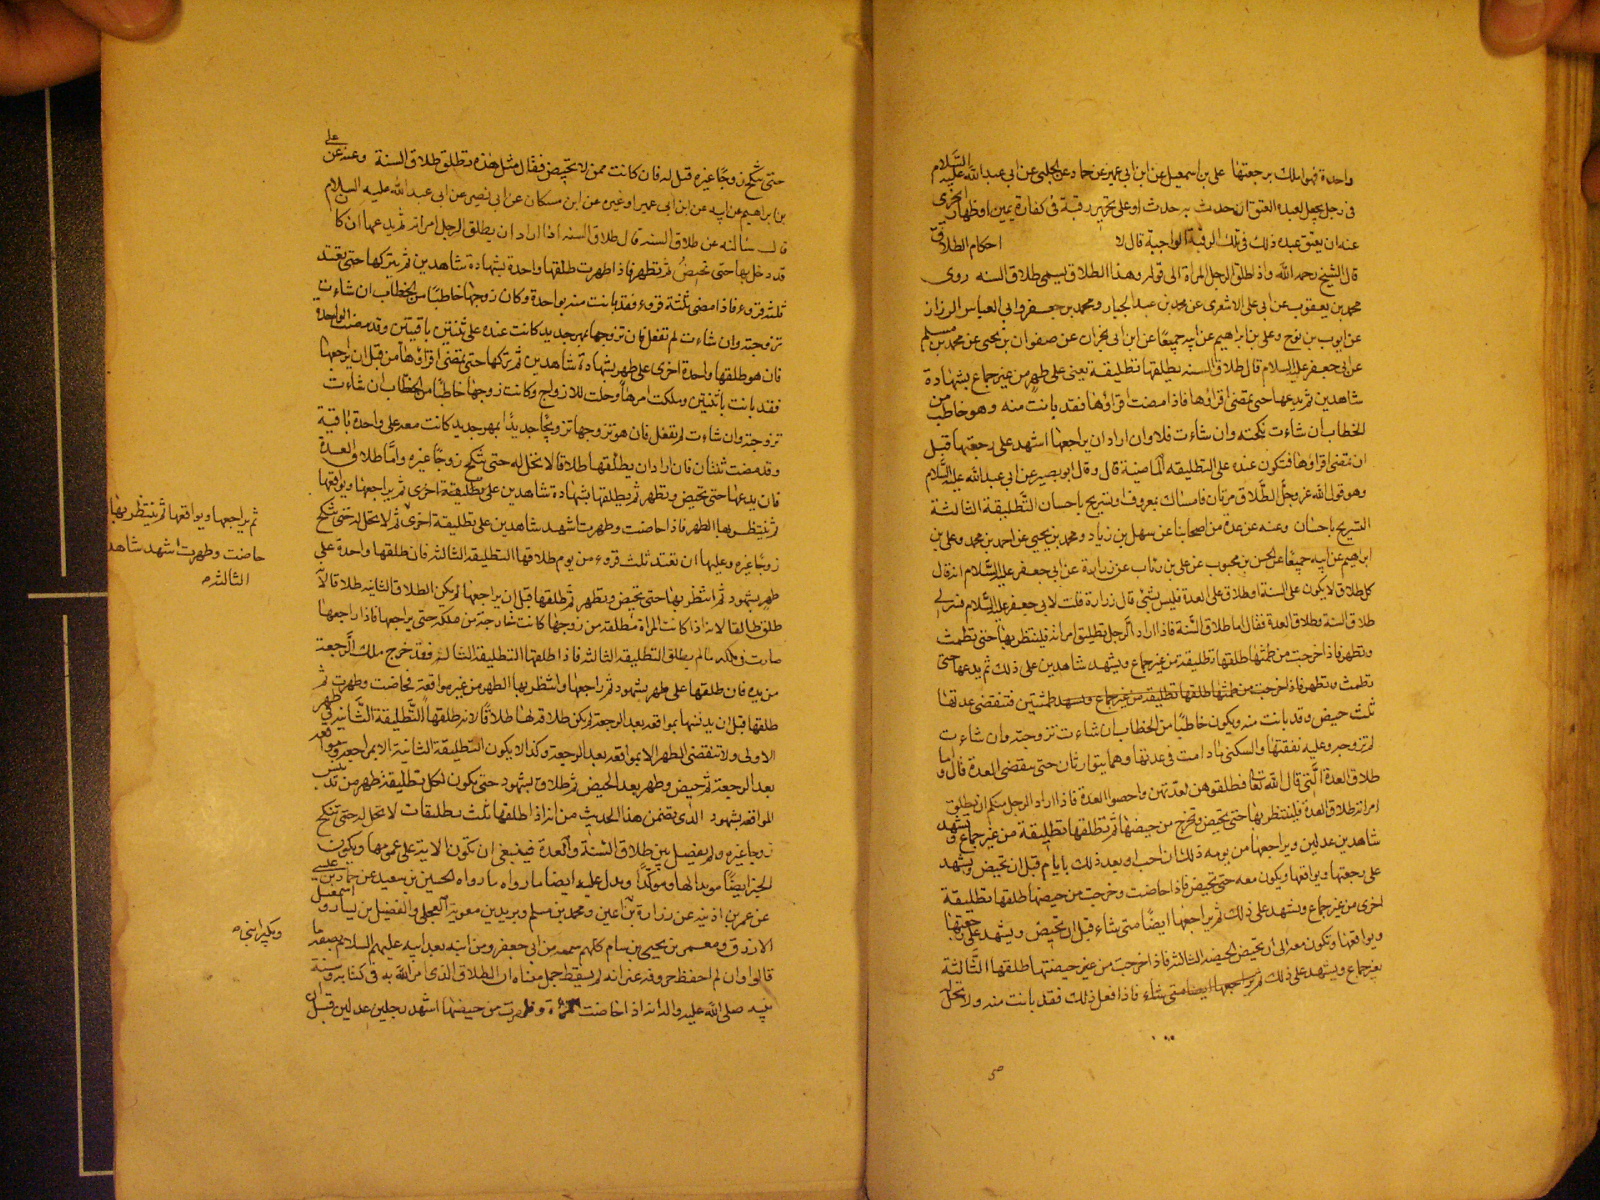 واحدة فهو املك برجعتها علي بن اسمعيل عن ابن ابي عمير عن حماد عن الحلبي عن ابي عبد الله عليه السلام
في رجل يجعل لعبده العتق ان حدث به حدث او على تحرير رقبة في كفارة يمين او ظهار ايجزى
عنه ان يعتق عبده ذلك في تلك الرقبة الواجبة قال لا احكام الطلاق
قال الشيخ رحمه الله واذا طلق الرجل المراة الى قوله وهذا الطلاق يسمى طلاق السنه روى
محمد بن يعقوب عن ابي علي الاشعرى عن محمد بن عبد الجبار ومحمد بن جعفر وابي العباس الرزاز
عن ايوب بن نوح وعلي بن ابراهيم عن ابيه جميعا عن ابن ابي نجران عن صفوان بن يحيى عن محمد بن مسلم
عن ابي جعفر عليه السلام قال طلاق السنه يطلقها تطليقة يعني على طهر من غير جماع بشهادة
شاهدين ثم يدعها حتى تمضى اقراؤها فاذا مضت اقراؤها فقد بانت منه وهو خاطب من
الخطاب ان شاءت نكحته وان شاءت فلا وان اراد ان يراجعها اشهد على رجعتها قبل
ان تمضى اقراؤها فتكون عنده على التطليقه الماضية قال وقال ابو بصير عن ابي عبد الله عليه السلام
وهو قول الله عز وجل الطلاق مرتان فامساك بمعروف او تسريح باحسان التطليقة الثالثة
التسريح باحسان وعنه عن عدة من اصحابنا عن سهل بن زياد ومحمد بن يحيى عن احمد بن محمد وعلي بن
ابراهيم عن ابيه جميعا عن الحسن بن محبوب عن علي بن رئاب عن زرارة عن ابي جعفر عليه السلام انه قال
كل طلاق لا يكون على السنة او طلاق على العدة فليس بشئ قال زرارة قلت لابي جعفر عليه السلام فسر لي
طلاق السنة وطلاق العدة فقال اما طلاق السنة فاذا اراد الرجل تطليق امراته فلينتظر بها حتى تطمث
وتطهر فاذا خرجت من طمثها طلقها تطليقة من غير جماع ويشهد شاهدين على ذلك ثم يدعها حتى
تطمث وتطهر فاذا خرجت من طمثها طلقها تطليقه من غير جماع ويشهد طمثتين فتنقضى عدتها
ثلث حيض وقد بانت منه ويكون خاطبا من الخطاب ان شاءت تزوجته وان شاءت
لم تزوجه وعليه نفقتها والسكنى مادامت في عدتها وهما يتوارثان حتى ينقضى العدة قال واما
طلاق العدة التي قال الله تعا فطلقوهن لعدتهن واحصوا العدة فاذا اراد الرجل منكم ان يطلق
امراته طلاق العدة فلينتظر بها حتى تحيض وتخرج من حيضها ثم تطلقها تطليقة من غير جماع ويشهد
شاهدين عدلين ويراجعها من يومه ذلك ان احب او بعد ذلك بايام قبل ان تحيض ويشهد
على رجعتها ويواقعها ويكون معه حتى تحيض فاذا حاضت وخرجت من حيضها طلقها تطليقة
اخرى من غير جماع ويشهد على ذلك ثم يراجعها ايضا متى شاء قبل ان تحيض ويشهد على رجعتها
ويواقعها وتكون معه الى ان تحيض الحيضه الثالثه فاذا خرجت من حيضتها طلقها الثالثة
بغير جماع ويشهد على ذلك ثم يراجعها ايضا متى شاء فاذا فعل ذلك فقد بانت منه ولا تحل له
حتى تنكح زوجا غيره قيل له فان كانت ممن لا تحيض فقال مثل هذه تطلق طلاق السنة وعنه عن علي
بن ابراهيم عن ابيه عن ابن ابي عمير او غيره عن ابن مسكان عن ابي بصير عن ابي عبد الله عليه السلام
قال سالته عن طلاق السنه قال طلاق السنه اذا اراد ان يطلق الرجل امراته ثم يدعها ان كا
قد دخل بها حتى تحيض ثم تطهر فاذا طهرت طلقها واحدة بشهادة شاهدين ثم يتركها حتى تعتد
ثلثه قروء فاذا مضى ثلثة قروء فقد بانت منه بواحدة وكان زوجها خاطبا من الخطاب ان شاءت
تزوجته وان شاءت لم تفعل فان تزوجها بمهر جديد كانت عنده على ثنتين باقيتين وقد مضت الواحدة
فان هو طلقها واحدة اخرى على طهر بشهادة شاهدين ثم تركها حتى تمضى اقراؤها من قبل ان يراجعها
فقد بانت باثنتين وملكت امرها وحلت للازواج وكانت زوجها خاطبا من الخطاب ان شاءت
تزوجته وان شاءت لم تفعل فان هو تزوجها تزويجا جديدا بمهر جديد كانت معه على واحدة باقية
وقد مضت ثنتان فان اراد ان يطلقها طلاقا لا تحل له حتى تنكح زوجا غيره واما طلاق العدة
فان يدعها حتى تحيض وتطهر ثم يطلقها بشهادة شاهدين على تطليقة اخرى ثم يراجعها ويواقعها
ثم ينتظر بها الطهر فاذا حاضت وطهرت شهد شاهدين على تطليقة اخرى ثم لا تحل له حتى تنكح
زوجا غيره وعليها ان تعتد ثلث قروء من يوم طلاقها التطليقه الثالثه فان طلقها واحدة على
طهر بشهود ثم انتظر بها حتى تحيض وتطهر ثم طلقها قبل ان يراجعها لم يكن الطلاق الثانيه طلاقا لانه
طلق طالقا لانه اذا كانت المراة مطلقة من زوجها كانت خارجة من ملكه حتى يراجعها فاذا راجعها
صارت في ملكه مالم يطلق التطليقه الثالثه فاذا طلقها التطليقة الثالثه فقد خرج ملك الرجعة
من يده فان طلقها على طهر بشهود ثم راجعها وانتظر بها الطهر من غير مواقعة فحاضت وطهرت ثم
طلقها قبل ان يدنيها بمواقعه بعد الرجعة لم يكن طلاقه لها طلاقا لانه طلقها التطليقة الثانية في طهر
الاولى ولا تنقضى الطهر الا بمواقعه بعد الرجعة وكذا لا يكون التطليقة الثانية الا بمراجعة ومواقعة
بعد الرجعة ثم حيض وطهر بعد الحيض ثم طلاق بشهود حتى يكون لكل تطليقة طهر من تدنيس
المواقعه بشهود الذى تضمن هذا الحديث من انه اذا طلقها ثلث تطليقات لا تحل له حتى تنكح
زوجا غيره ولم يفصل بين طلاق السنة والعدة فينبغي ان تكون الاية على عمومها ويكون
الخبر ايضا مويدا لها وموكدا ويدل عليه ايضا ما رواه ما رواه الحسين بن سعيد عن حماد بن عيسى
عن عمر بن اذينه عن زرارة بن اعين ومحمد بن مسلم وبريد بن معوية العجلي والفضيل بن يسار واسمعيل
الازرق ومعمر بن يحيى بن سام كلهم سمعه من ابي جعفر ومن ابنه بعد ابيه عليهم السلام بصفة ما
قالوا وان لم احفظ حروفه غير انه لم يسقط جمل معناه ان الطلاق الذى امر الله به في كتابه وسنة
نبيه صلى الله عليه واله انه اذا حاضت المراة وطهرت من حيضها اشهد رجلين عدلين قبل ان
ثم يراجعها ويواقعها ثم ينتظر بها
حاضت وطهرت اشهد شاهد
الثالثه
وبكير